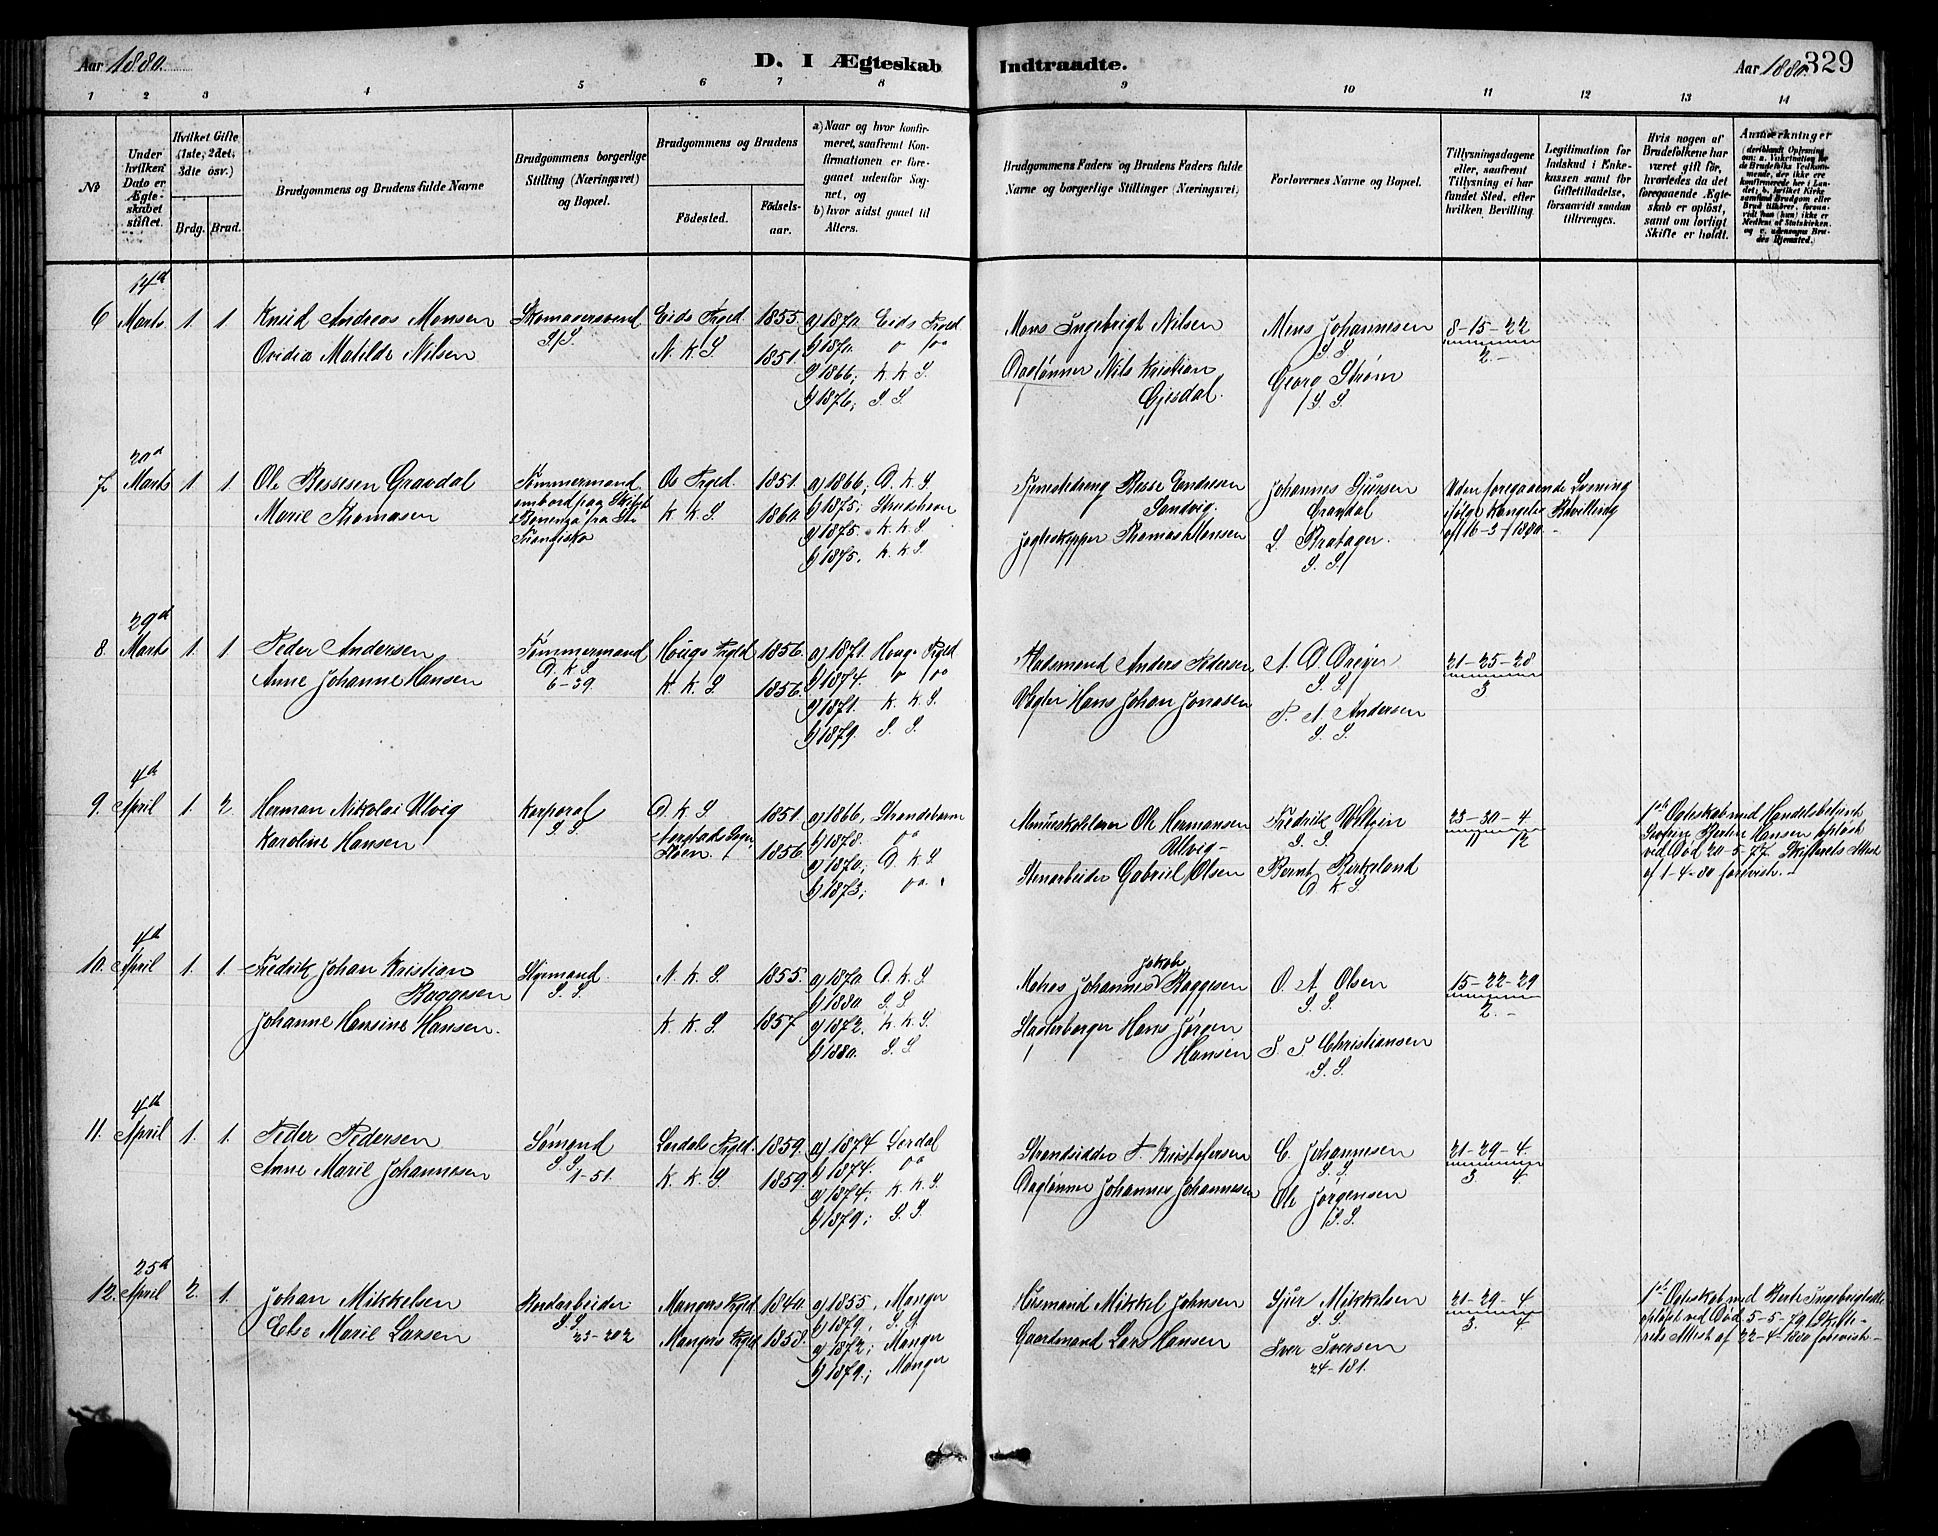 Aar 1880.
D. I Ægteskab Indtraadte.
Aar 1880. 329
1 2 3 4 5 6 7 8 9 10 11 12 13 14
No
Under hvilken Dato er Ægteskabet stiftet.
Hvilket Gifte (1ste, 2det, 3die osv.)
Brdg. Brud.
Brudgommens og Brudens fulde Navne
Brudgommens borgerlige Stilling (Næringsvei) og Bopæl.
Brudgommens og Brudens
Födested. Födsels-aar.
a) Naar og hvor konfirmeret, saafremt Konfirmationen er foregaaet udenför Sognet, og
b) hvor sidst gaaet til Alters.
Brudgommens Faders og Brudens Faders fulde Navne og borgerlige Stillinger (Næringsvei)
Forlovernes Navne og Bopæl.
Tillysningsdagene eller, saafremt Tillysning ei har fundet Sted, efter hvilken Bevilling.
Legitimation for Indskud i Enkekassen samt för Giftetilladelse, forsaavidt saadan tiltrænges.
Hvis nogen af Brudefolkene har været gift för, hvorledes da det foregaaende Ægteskab er oplöst, samt om lovligt Skifte er holdt.
Anmærkninger
6 14d Marts 1. 1 Knud Andreas Monsen
Ovidia Matilde Nilsen
Skomagersvend
S. S.
Eids Prgld. 1855.
N. K. S 1851.
a) 1870. Eids Prgld
b) 1870. " "
a) 1866; K. K. S.
b) 1876; S. S.
Mons Ingebrigt Nilsen
Daglønner Nils Kristian Gjesdal.
Mons Johannesen
S. S.
Georg Strøm
S. S.
8-15-22
2.
7. 20d Marts 1. 1 Ole Bessesen Gravdal
Marie Thomasen
Tømmermand
ombord paa Skibet
fra St. Frandisko
Os Prgld. 1851.
K. K. S 1860.
a) 1866; D. K. S
b) 1875; Strudshavn
a) 1875. K. K. S
b) 1875. K. K. S
Tjenestedreng Besse Endresen Sandvig.
Jagteskipper Thomas Monsen
Johannes Sjursen Gravdal
L. Bratager.
S. S.
Uden foregaaende Lysning
ifølge kongelig Bevilling
af 16-3-1880.
8. 29d Marts 1. 1 Peder Andersen
Anne Johanne Hansen
Tømmermand
D. K. S.
6-39.
Hougs Prgld 1856.
K. K. S 1856.
a) 1871. Hougs Prgld
b) 1874. " "
a) 1871. K. K. S
b) 1879. S. S.
Pladsmand Anders Pedersen
Vægter Hans Johan Jonasen
A. D. Dreyer
S. S.
P. A. Andersen
S. S.
21-25-28
3
9. 4d April 1. 2 Herman Nikolai Ulvig
Karoline Hansen
Korporal
S. S
D. K. S 1851.
1856.
a) 1866, Strandebarm
b) 1878. "
a) 1870; D. K. S
b) 1873; "
Ole Hermansen Ulvig
Stenarbeider Gabriel Olsen
Fredrik
S. S.
Bernt Birkeland
D. K. S
23-30-4
11 12
1ste Ægteskab med Handelsbetjent
Hansen opløst
ved Død 20-5-77. Skifterets Attest
af 1-4-80 forevist.
10. 4d April 1. 1. Fredrik Johan Kristian Baggesen
Johanne Hansine Hansen.
Styrmand.
S. S.
N. K. S 1855.
K. K. S 1857
a) 1870. D. K. S
b) 1880. S. S
a) 1872. K. K. S.
b) 1880. S. S
Matros Johannes Jakob Baggesen
Hans Jørgen Hansen
O. A. Olsen
S. S.
S. S. Christiansen
S. S.
15-22-29
2.
11. 4d April 1. 1. Peder Pedersen
Anne Marie Johannesen
Sømand
S. S.
1-51.
Lerdals Prgld. 1859.
K. K. S 1859.
a) 1874 Lerdal
b) 1874. "
a) 1874. K. K. S
b) 1879; S. S.
Strandsidder P. Kristofersen
Daglønner Johannes Johannesen
C. Johannesen
S. S.
Ole Jørgensen
S. S.
21-29-4.
3 4
12. 25d April 2. 1. Johan Mikkelsen
Else Marie Larsen
Jordarbeider
S. S.
23-202
Mangers Prgld 1840.
Mangers Prgld 1858.
a) 1855, Manger
b) 1879, S. S.
a) 1872; Manger
b) 1879; Manger
Husmand Mikkel Johnsen
Gaardmand Lars Hansen
Sjur Mikkelsen
S. S.
Iver Iversen
24-181.
21-29-4
3. 4.
1ste Ægteskab med Berte Ingebrigtsdtr
opløst ved Død 5-5-79. Skifterets Attest af 22-4-1880 forevist